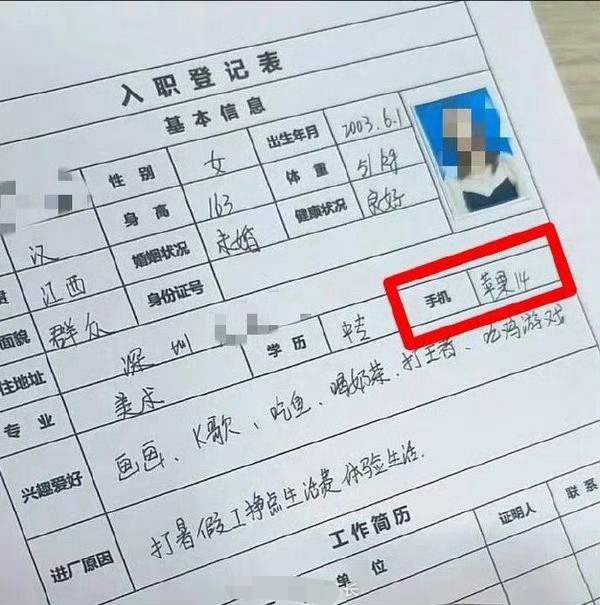 入职登记表
基本信息
性别 女 出生年月 2003.6.1
身高 163 体重 51kg
汉 婚姻状况 未婚 健康状况 良好
贵 江西 身份证号 手机 苹果14
面貌 群众
住地址 深圳 学历 中专
专业 美术
兴趣爱好 画画、K歌、吃鱼、喝奶茶、打王者、吃鸡游戏
进厂原因 打暑假工挣点生活费体验生活.
工作简历
单位 证明人 联系
长